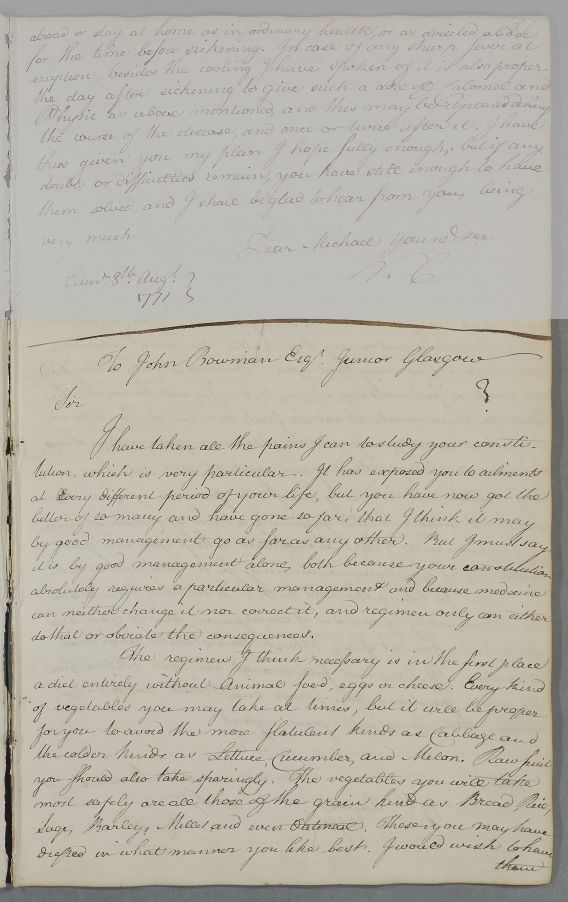 abroad or stay at home as in ordinary health, or as directed
for the time before sickening. In case of any sharp fever at
eruption, besides the cooling I have spoken of it is also proper
the day after sickening to give such a dose of Calomel and
Physic as above mentioned, and this may be repeated during
the course of the disease, and once or twice after it. I have
thus given you my plan I hope fully enough, but if any
doubts or difficulties remain, you have still enough to have
them solved, and I shall be glad to hear from you, being
very much
Dear Michael Yours &ca
W. C.
Edinr. 8th. Augt. }
1771 }
To John Bowman Esqr. Junior Glasgow
Sir }
I have taken all the pains I can to study your consti-
tution, which is very particular. It has exposed you to ailments
at every different period of your life, but you have now got the
better of so many and have gone so far, that I think it may
by good management go as far as any other. But I must say
it is by good management alone, both because your constitution
absolutely requires a particular management and because medicine
can neither change it nor correct it, and regimen only can either
do that or obviate the consequences.
The regimen I think necessary is in the first place
a diet entirely without Animal food, eggs or cheese. Every kind
of vegetables you may take at times, but it will be proper
for you to avoid the more flatulent kinds as Cabbage and
the colder kinds as Lettuce, Cucumber, and Melon. Raw fruit
you should also take sparingly. The vegetables you will take
most safely are all those of the grain kind as Bread, Rice,
Sago, Barley, Millet and even Oatmeal. These you may have
dressed in what manner you like best. I would wish to have
them